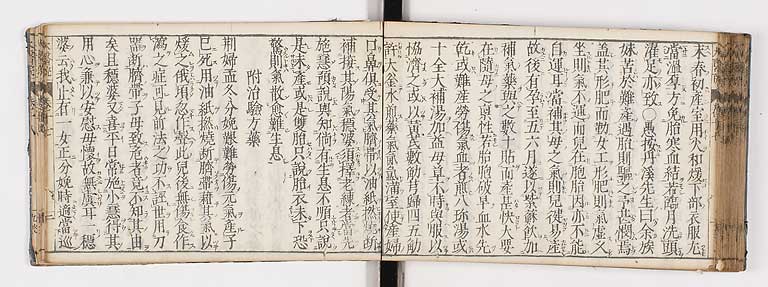 末春初產室用火和煖下部衣服尤
當溫厚方免胎寒血結若臨月洗頭
濯足亦致○愚按丹溪先生曰余族
妹苦於難產遇胎則觸之余甚憫焉
益其形肥而勤女工形肥則氣虛久
坐則氣不運而兒在胞胎因亦不能
自運耳當補其母之氣則兒健易產
故後有孕至五六月遂以紫蘇飲加
補氣藥與之數十貼而產甚快大要
在隨母之禀性若胎胞破早血水先
乾或難產勞傷氣血者煎八珍湯或
十全大補湯加益母草不時與服以
協濟之或以黃芪數觔芎歸四五觔
許大釜水煎藥氣氤氳滿室使產婦
口鼻俱受其氣臍帶以油紙撚燒斷
補接其陽氣穩婆須擇老練者當先
施惠預說與知倘有生息不順只說
是未產或是雙胎只說胎衣未下恐
驚則氣散愈難生息
附治驗方藥
荆婦孟冬分娩艱難勞傷元氣產子
已死用油紙撚燒斷臍帶藉其氣以
煖之俄頃忽作聲此兒後無傷食作
瀉之症可見前法之功不誣世用刀
斷臍帶子母致危者竟不知其由
矣且穩婆又喜平日常施小惠得其
用心兼以安慰母懷故無虞耳一穩
婆云我止有一女正分娩時適當巡